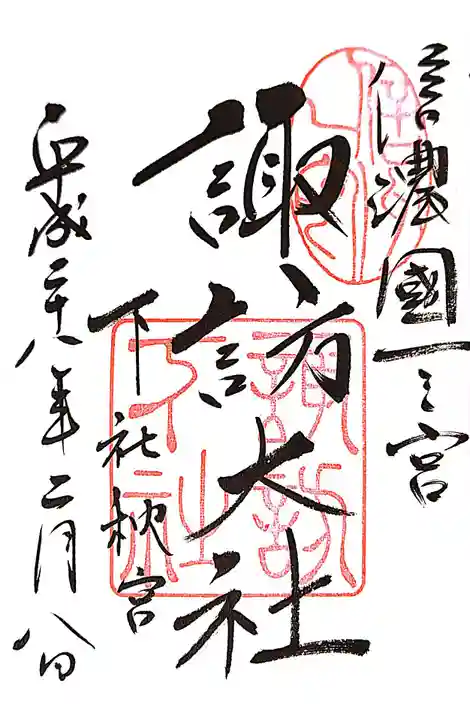 信濃國一之宮
諏訪大社
下社秋宮
平成二十八年二月八日
諏訪
下社